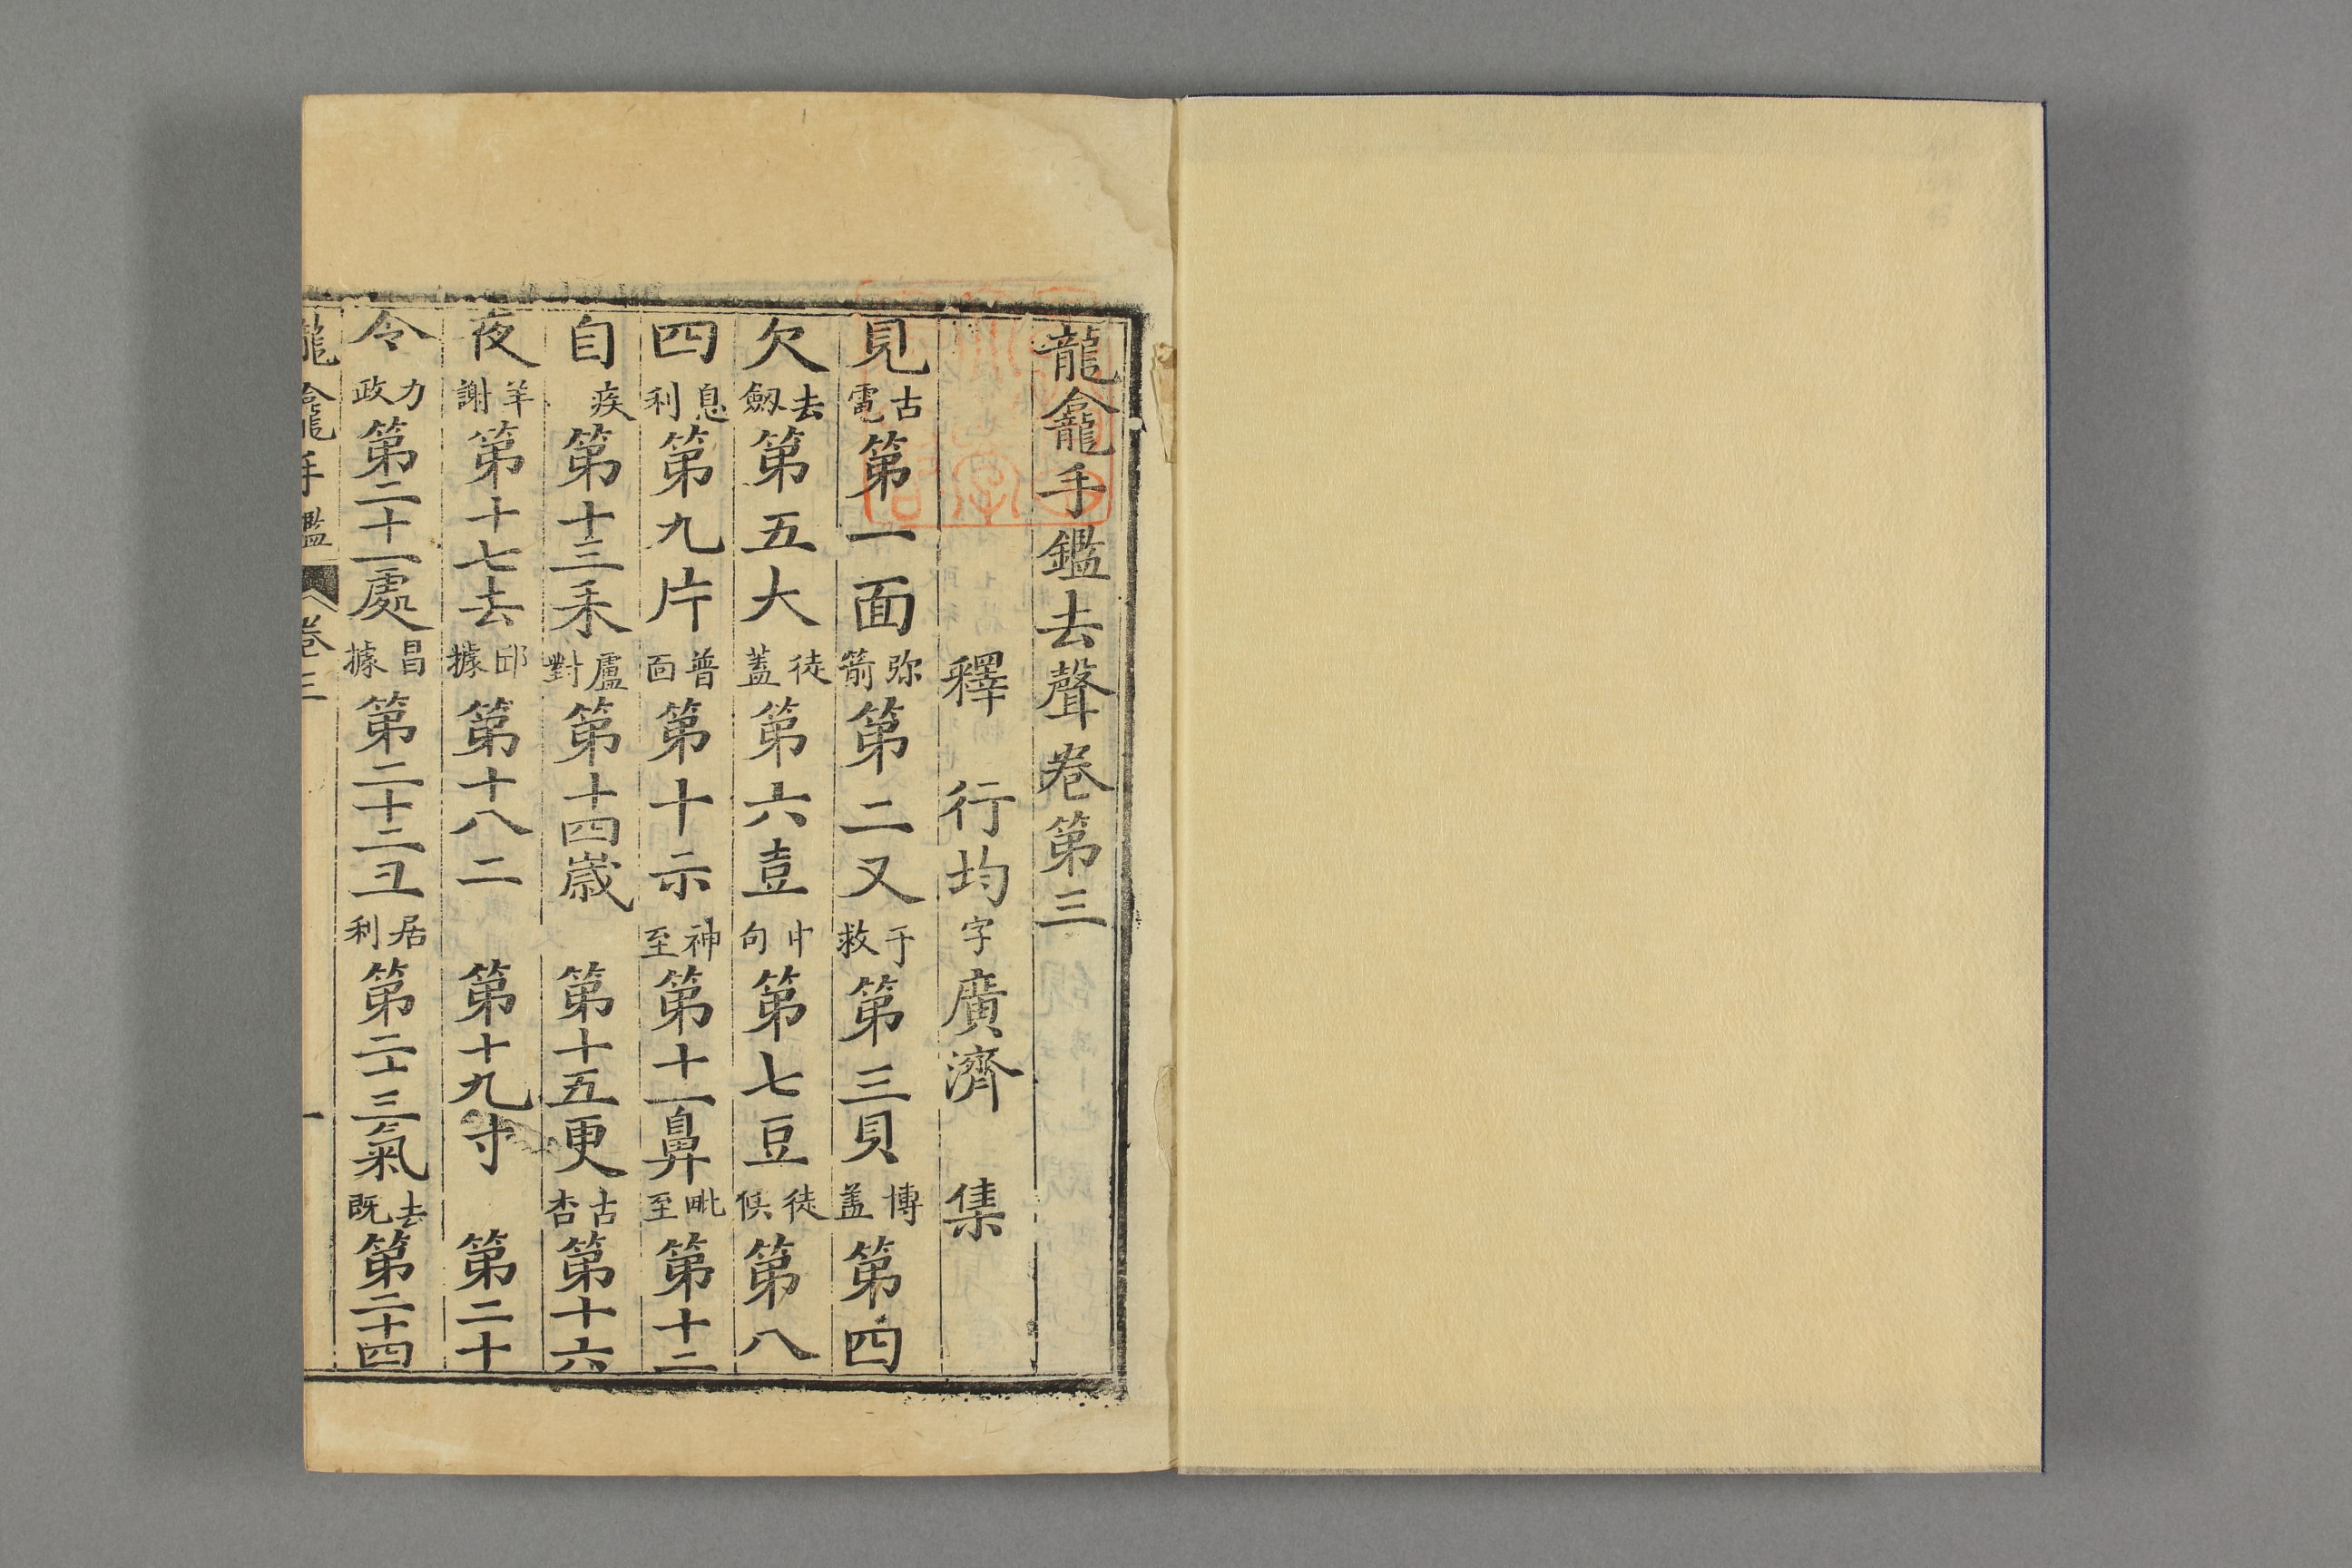 龍龕手鑑去聲卷第三
釋行均字廣濟集
見古電第一面弥箭第二又于救第三貝博蓋第四
欠去劔第五大徒蓋第六壴中句第七豆徒候第八
四息利第九片普面第十示神至第十一鼻毗至第十二
自疾第十三耒盧對第十四嵗第十五更古杏第十六
夜羊謝第十七去邱據第十八二第十九寸第二十
令力政第二十一處昌據第二十二彐居利第二十三氣去既第二十四
龍龕手鑑卷三一